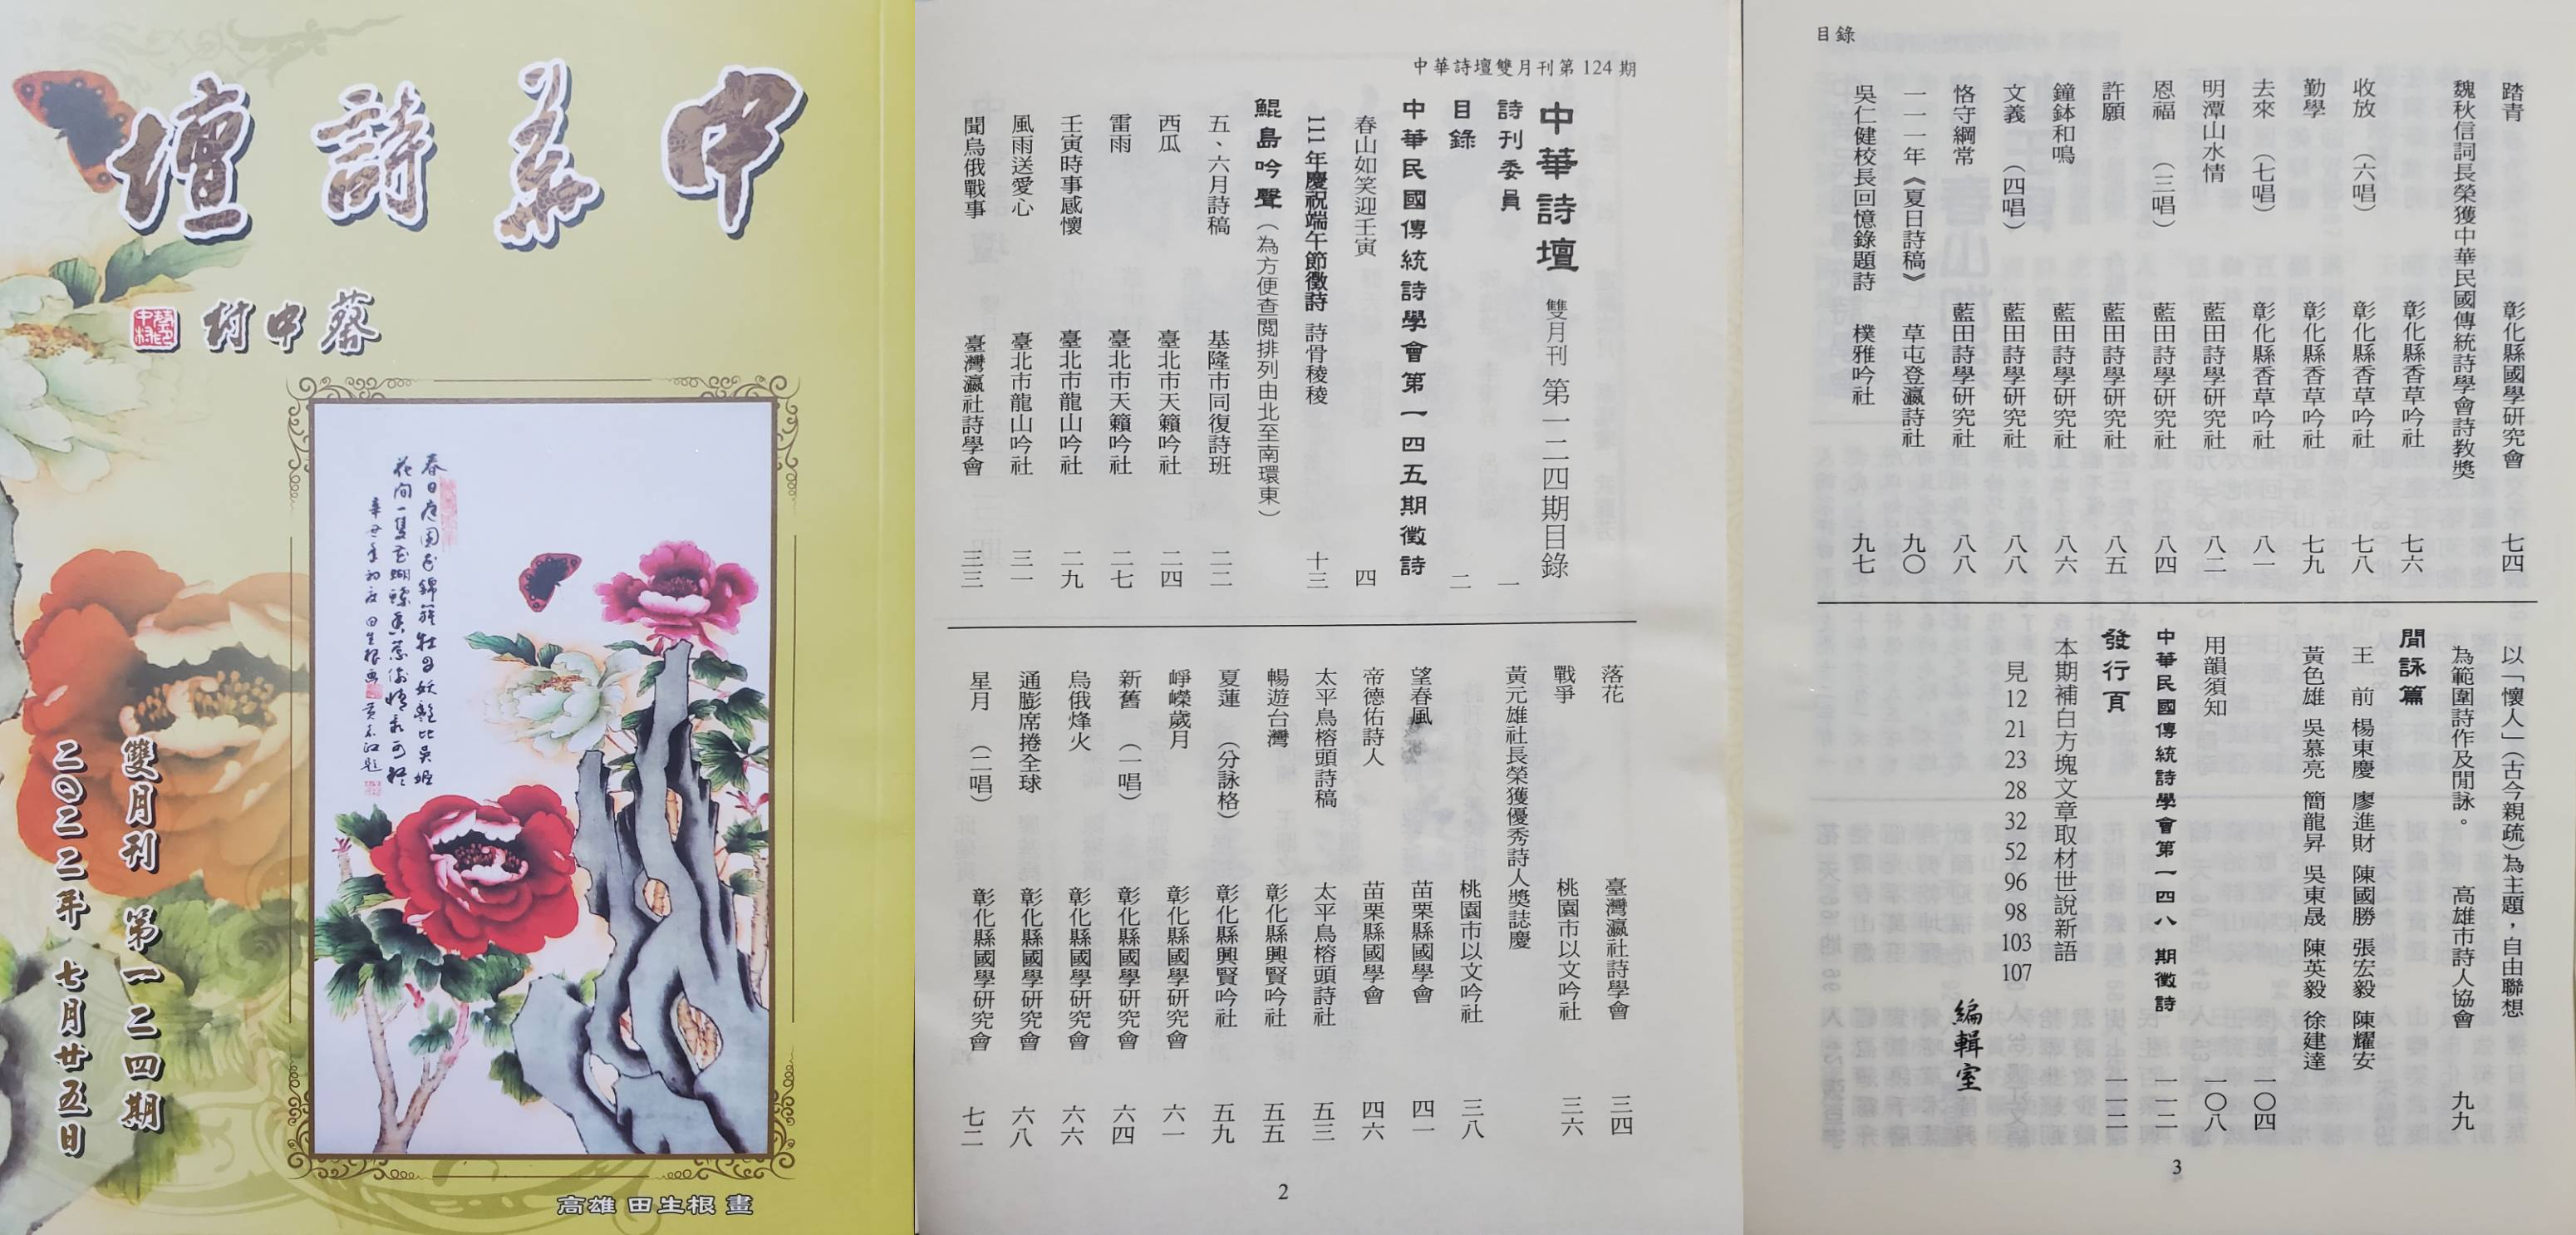 中華詩壇
蔡中村
春日庭園花錦簇牡丹妖艷比吳姬
高雄 田生根 畫
雙月刊 第一二四期
二〇二二年 七月廿五日
中華詩壇雙月刊第124期
中華詩壇 雙月刊 第一二四期目錄
詩刊委員 一
目錄 二
中華民國傳統詩學會第一四五期徵詩
春山如笑迎壬寅 四
111年慶祝端午節徵詩 詩骨稜稜 十三
鯤島吟聲(為方便查閱排列由北至南環東)
五、六月詩稿 基隆市同復詩班 二二
西瓜 臺北市天籟吟社 二四
雷雨 臺北市天籟吟社 二七
壬寅時事感懷 臺北市龍山吟社 二九
風雨送愛心 臺北市龍山吟社 三一
聞烏俄戰事 臺灣瀛社詩學會 三三
落花 臺灣瀛社詩學會 三四
戰爭 桃園市以文吟社 三六
黃元雄社長榮獲優秀詩人獎誌慶
桃園市以文吟社 三八
望春風 苗栗縣國學會 四一
帝德佑詩人 苗栗縣國學會 四六
太平鳥榕頭詩稿 太平鳥榕頭詩社 五三
暢遊台灣 彰化縣興賢吟社 五五
夏蓮 (分詠格) 彰化縣興賢吟社 五九
崢嶸歲月 彰化縣國學研究會 六一
新舊 (一唱) 彰化縣國學研究會 六四
烏俄烽火 彰化縣國學研究會 六六
通膨席捲全球 彰化縣國學研究會 六八
星月 (二唱) 彰化縣國學研究會 七二
2
目錄
踏青 彰化縣國學研究會 七四
魏秋信詞長榮獲中華民國傳統詩學會詩教獎
彰化縣香草吟社 七六
收放 (六唱) 彰化縣香草吟社 七八
勤學 彰化縣香草吟社 七九
去來 (七唱) 彰化縣香草吟社 八一
明潭山水情 藍田詩學研究社 八二
恩福 (三唱) 藍田詩學研究社 八四
許願 藍田詩學研究社 八五
鐘鉢和鳴 藍田詩學研究社 八六
文義 (四唱) 藍田詩學研究社 八八
恪守綱常 藍田詩學研究社 八八
一一一年《夏日詩稿》 草屯登瀛詩社 九〇
吳仁健校長回憶錄題詩 樸雅吟社 九七
以「懷人」(古今親疏)為主題,自由聯想
為範圍詩作及閒詠。 高雄市詩人協會 九九
閒詠篇
王 前 楊東慶 廖進財 陳國勝 張宏毅 陳耀安
黃色雄 吳慕亮 簡龍昇 吳東晟 陳英毅 徐建達
一〇四
用韻須知 一〇八
中華民國傳統詩學會第一四八 期徵詩 一一二
發行頁 一一二
本期補白方塊文章取材世說新語
見 12 21 23 28 32 52 96 98 103 107
編輯室
3